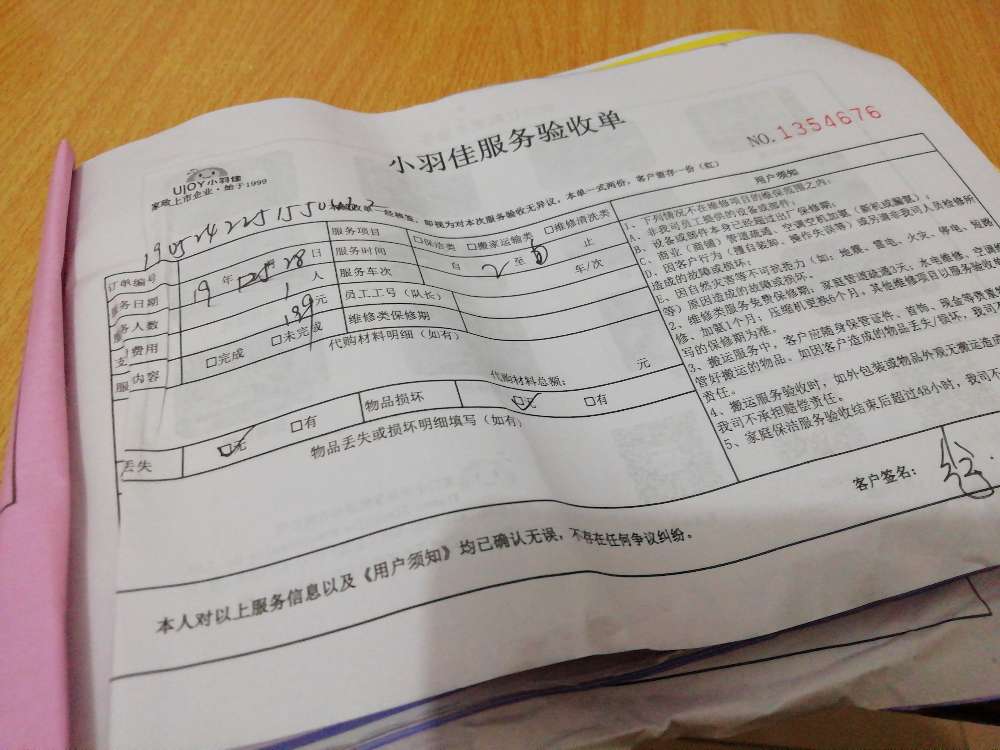 小羽佳服务验收单
NO.1354676
UJOY小羽佳
家政上市企业·始于1999
即视为对本次服务验收无异议,本单一式两份,客户留存一份(红)
订单编号
服务项目 □保洁类 □搬家运输类 □维修清洗类
务日期 19年 28日 服务时间 自2至 止
务人数 1人 服务车次 车/次
费用 元 员工工号(队长)
内容 □完成 □未完成 维修类保修期
代购材料明细(如有)
代购材料总额: 元
丢失 □无 □有 物品损坏 □无 □有
物品丢失或损坏明细填写(如有)
用户须知
1、下列情况不在维修项目的维保范围之内:
A、非我司员工提供的设备或部件;
B、设备或部件本身已经超过出厂保修期;
C、商业(商铺)管道疏通、空调空机加氨
D、因客户行为(擅自装加、操作失误等)或另请非我司人员检修所
造成的故障或损坏;
E、因自然灾害等不可抗拒力(如:地震、雷电、火灾、停电、短路
等)原因造成的故障或损坏。
2、维修类服务免费保修期:家庭管道疏通3天,水电维修、空调
修、加氨1个月;压缩机更换6个月,其他维修项目以服务验收单
写的保修期为准。
3、搬运服务中,客户应随身保管证件、首饰、现金等贵重
管好搬运的物品。如因客户造成的物品丢失/毁坏,我司不
责任。
4、搬运服务验收时,如外包装或物品外观无搬运造成
我司不承担赔偿责任。
5、家庭保洁服务验收结束后超过48小时,我司不
客户签名:
本人对以上服务信息以及《用户须知》均已确认无误,不存在任何争议纠纷。